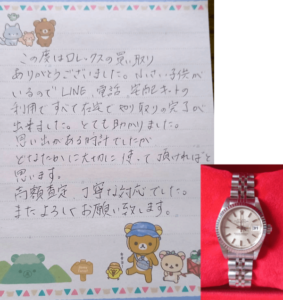 この度はロレックスの買い取り
ありがとうございました。小さい子供が
いるのでLINE、電話、宅配キットの
利用ですべて在宅でやり取りの完了が
出来ました。とても助かりました。
思い出がある時計でしたが
どなたかに大切に使って頂ければと
思います。
高額査定、丁寧な対応でした。
またよろしくお願い致します。